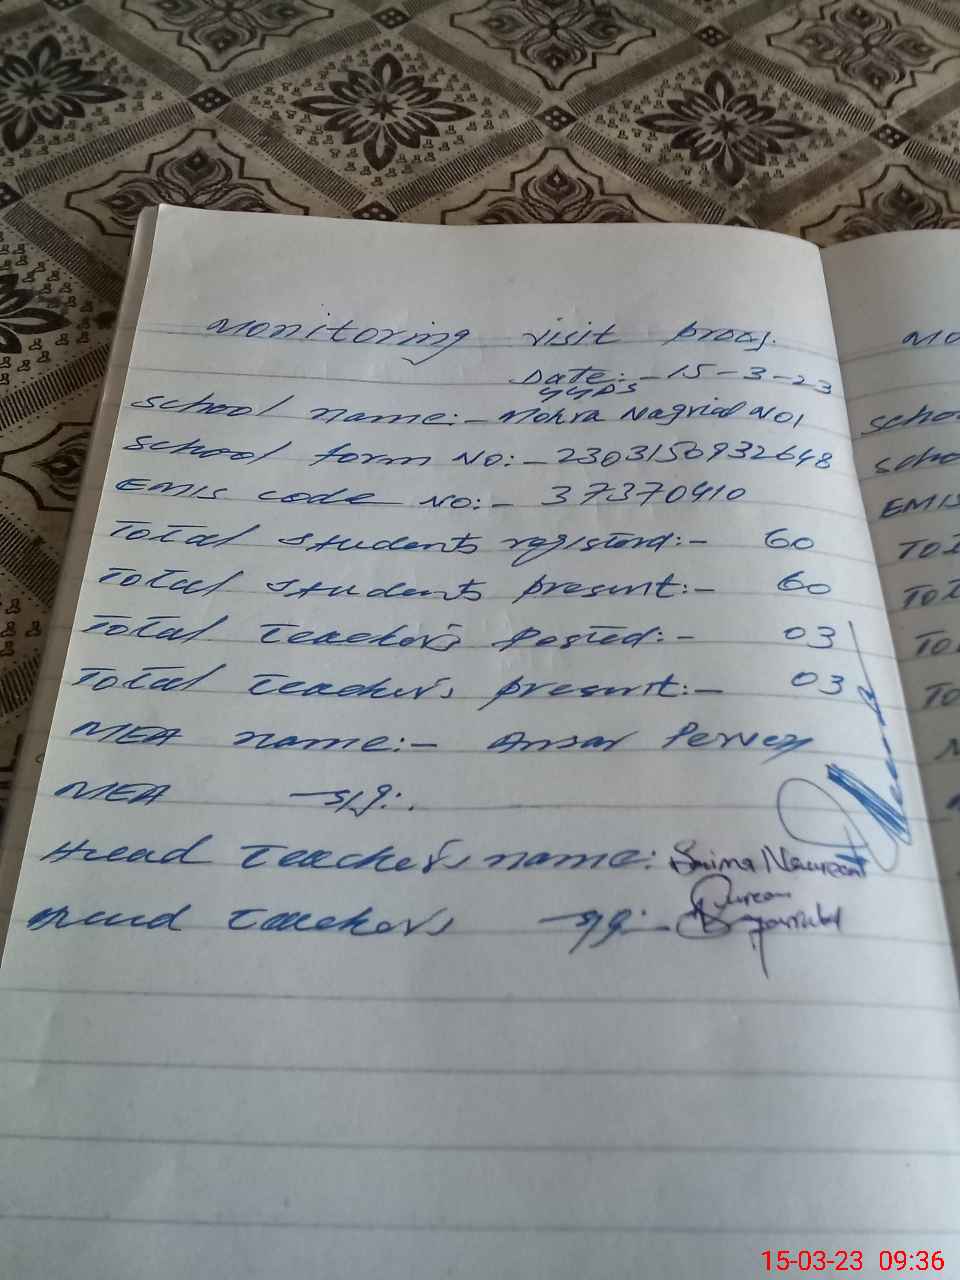 Monitoring visit proog.
Date:- 15-3-23
GGPS
School name:- Mohra Nagrial NO1
School form No:- 2303150932648
EMIS code No:- 37370410
Total students registerd:- 60
Total students present:- 60
Total teachers Posted:- 03
Total teachers present:- 03
MEA name:- Ansar Pervez
MEA sig:.
Head Teacher's name: Saima Noureen
Head teachers sig:-
Mo
Scho
Scho
EMIS
Tot
Tot
To
To
15-03-23 09:36